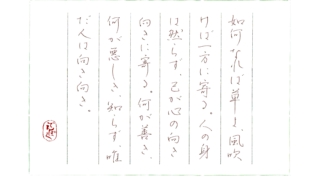 如何なれば草よ、風吹
けば一方に寄る。人の身
は然らず、己が心の向き
向きに寄る。何が善き、
何が悪しき、知らず、唯
だ人は向き向き。